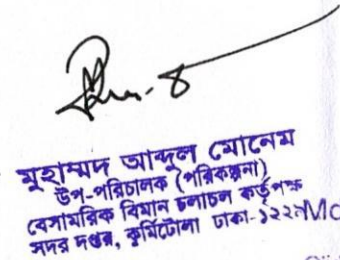 মুহাম্মদ আব্দুল মোনেম
উপ-পরিচালক (পরিকল্পনা)
বেসামরিক বিমান চলাচল কর্তৃপক্ষ
সদর দপ্তর, কুর্মিটোলা ঢাকা-১২২৯